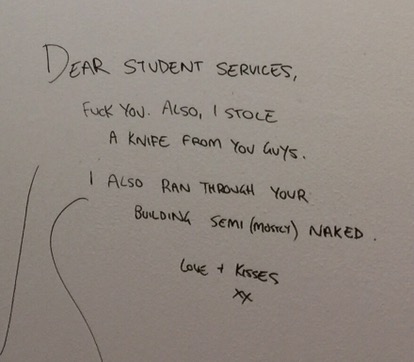 DEAR STUDENT SERVICES,
FUCK YOU. ALSO, I STOLE
A KNIFE FROM YOU GUYS.
I ALSO RAN THROUGH YOUR
BUILDING SEMI (MOSTLY) NAKED.
LOVE + KISSES
XX